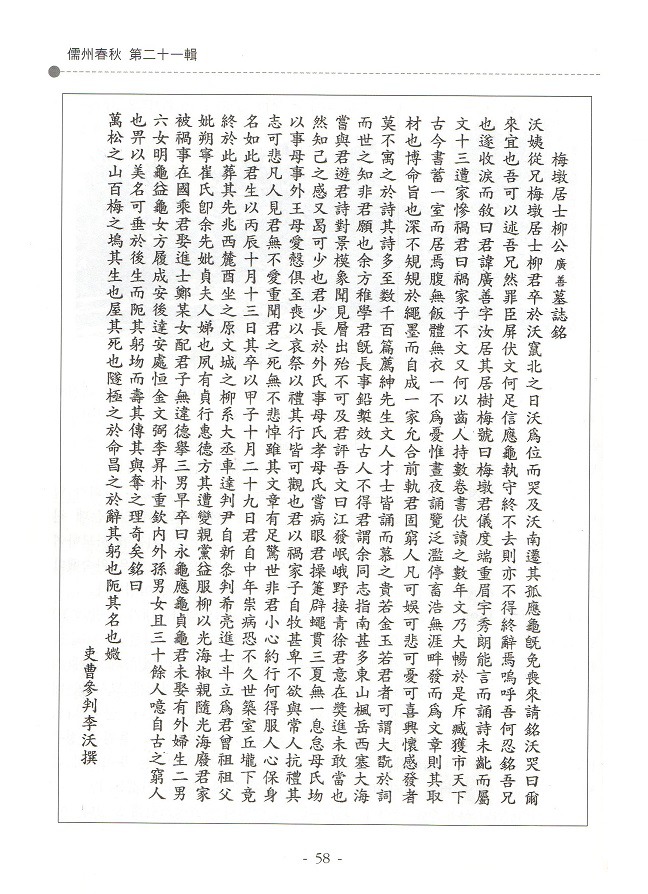 儒州春秋 第二十一輯
梅墩居士柳公廣善墓誌銘
沃姨從兄梅墩居士柳君卒於沃竄北之日沃爲位而哭及沃南遷其孤應龜旣免喪來請銘沃哭曰爾
來宜也吾可以述吾兄然罪臣屏伏文何足信應龜執守終不去則亦不得終辭焉嗚呼吾何忍銘吾兄
也遂收淚而敘曰君諱廣善字汝居其居樹梅號曰梅墩君儀度端重眉宇秀朗能言而誦詩未齔而屬
文十三遭家慘禍君曰禍家子不文又何以齒人持數卷書伏讀之數年文乃大暢於是斥臧獲市天下
古今書蓄一室而居焉腹無飯體無衣一不爲憂惟晝夜誦覽泛濫停畜浩無涯畔發而爲文章則其取
材也博命旨也深不規規於繩墨而自成一家允合前軌君固窮人凡可娛可悲可憂可喜興懷感發者
莫不寓之於詩其詩多至數千百篇薦紳先生文人才士皆誦而慕之貴若金玉若君者可謂大翫於詞
而世之知非君願也余方稚學君旣長事鉛槧效古人不得君謂余同志指南甚多東山楓岳西塞大海
嘗與君遊君詩對景模象聞見層出殆不可及君評吾文曰江發岷峨野接青徐君意在獎進未敢當也
然知己之感又曷可少也君少長於外氏事母氏孝母氏嘗病眼君操箑辟蠅貫三夏無一息怠母氏歿
以事母事外王母愛慤俱至喪以哀祭以禮其行皆可觀也君以禍家子自牧甚卑不欲與常人抗禮其
志可悲凡人見君無不愛重聞君之死無不悲悼雖其文章有足驚世非君小心約行何得服人心保身
名如此君生以丙辰十月十三日其卒以甲子十月二十九日君自中年祟病恐不久世築室丘壠下竟
終於此葬其先兆西麓酉坐之原文城之柳系大丞車達判尹自新叅判希亮進士斗立爲君曾祖祖父
妣朔寧崔氏卽余先妣貞夫人娣也夙有貞行惠德方其遭變親黨益服柳以光海椒親隨光海廢君家
被禍事在國乘君娶進士鄭某女配君子無違德擧三男早卒曰永龜應龜貞龜君未娶有外婦生二男
六女明龜益龜女方履成安後達安處恒金文弼李昇朴重欽内外孫男女且三十餘人噫自古之窮人
也畀以美名可垂於後生而阨其躬歿而壽其傳其與奪之理奇矣銘曰
萬松之山百梅之塢其生也屋其死也隧極之於命昌之於辭其躬也阨其名也
吏曹參判李沃撰
- 58 -